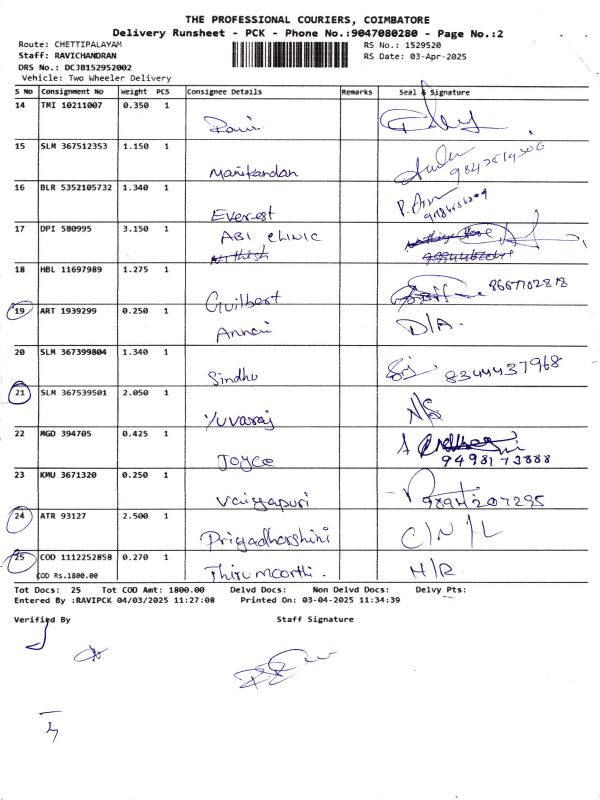 THE PROFESSIONAL COURIERS, COIMBATORE
Delivery Runsheet - PCK - Phone No.:9047080280 - Page No.:2
Route: CHETTIPALAYAM RS No.: 1529520
Staff: RAVICHANDRAN RS Date: 03-Apr-2025
DRS No.: DCJB152952002
Vehicle: Two Wheeler Delivery
S No Consignment No Weight PCS Consignee Details Remarks Seal & Signature
14 TMI 10211007 0.350 1
15 SLM 367512353 1.150 1
Manikandan
16 BLR 5352105732 1.340 1
Everest
17 DPI 580995 3.150 1 ABI CLINIC
Nithish
18 HBL 11697989 1.275 1
Guilbert 8667702818
19 ART 1939299 0.250 1
Annai D/A.
20 SLM 367399804 1.340 1
Sindhu 8344437968
21 SLM 367539501 2.050 1
Yuvaraj N/S
22 MGD 394705 0.425 1
Joyce 9498173888
23 KMU 3671320 0.250 1
Vaiyapuri 9894207295
24 ATR 93127 2.500 1
Priyadharshini C/N/L
25 COD 1112252858 0.270 1
COD Rs.1800.00 Thirumoorthi. N/R
Tot Docs: 25 Tot COD Amt: 1800.00 Delvd Docs: Non Delvd Docs: Delvy Pts:
Entered By :RAVIPCK 04/03/2025 11:27:08 Printed On: 03-04-2025 11:34:39
Verified By Staff Signature